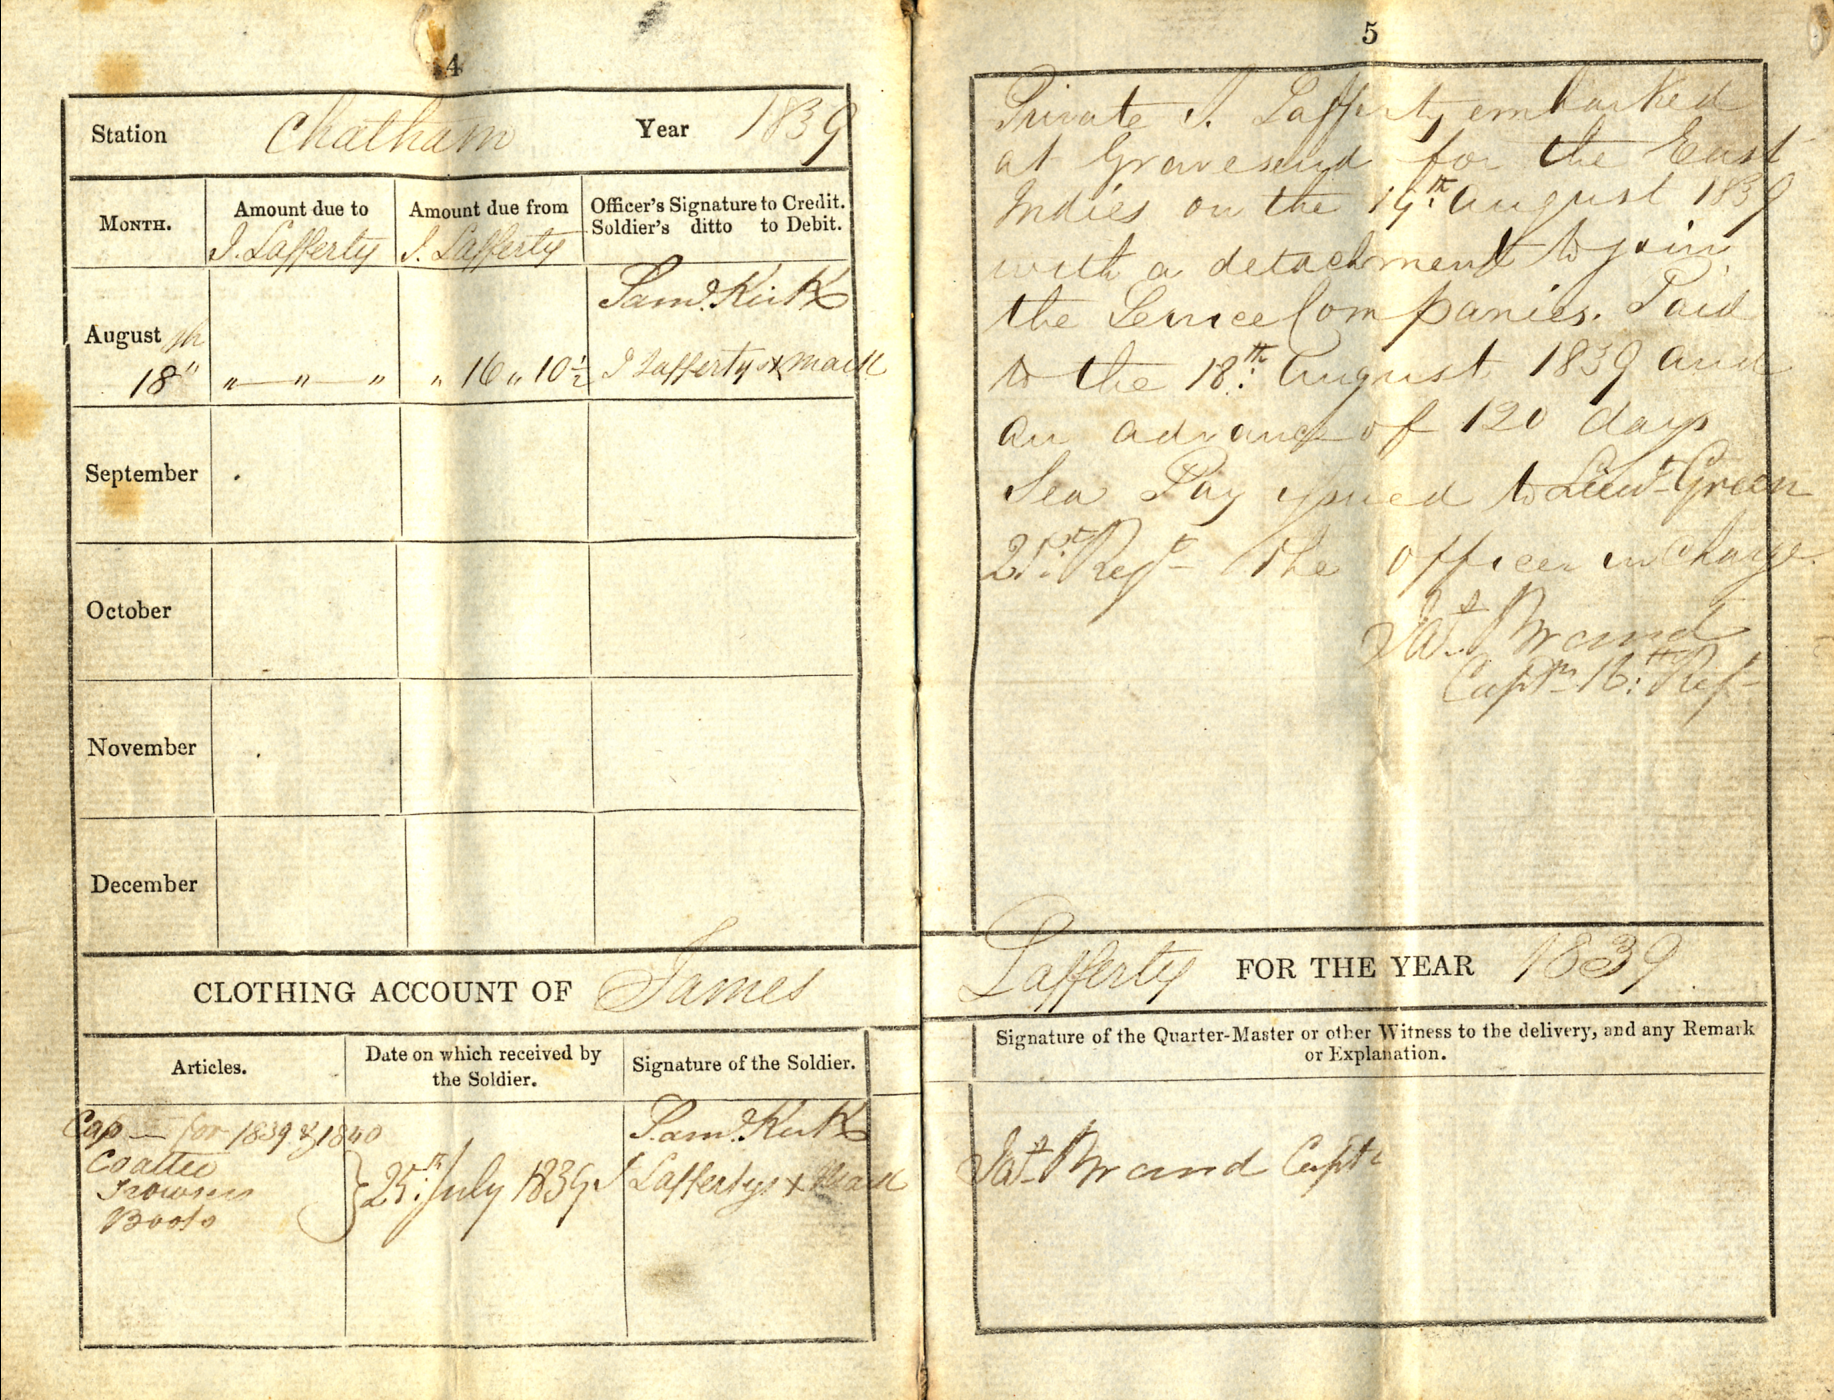 4
Station Chatham Year 1839
MONTH.
Amount due to
J. Lafferty
Amount due from
J. Lafferty
Officer's Signature to Credit.
Soldier's ditto to Debit.
Saml. Kirk
August
18th " — " — " " 16 " 10½ J Laffertys x mark
September
October
November
December
CLOTHING ACCOUNT OF James
Articles.
Date on which received by
the Soldier.
Signature of the Soldier.
Cap — for 1839 & 1840
Coattee
Trowsers
Boots
25th July 1839
Saml. Kirk
J Laffertys x Mark
5
Private J. Lafferty embarked
at Gravesend for the East
Indies on the 19th August 1839
with a detachment to join
the Service Companies. Paid
to the 18th August 1839 and
an advance of 120 days
Sea Pay issued to Lieut Green
21st Regt the officer in charge
Brand
Captn 16th Regt
Lafferty FOR THE YEAR 1839
Signature of the Quarter-Master or other Witness to the delivery, and any Remark
or Explanation.
Brand Captn